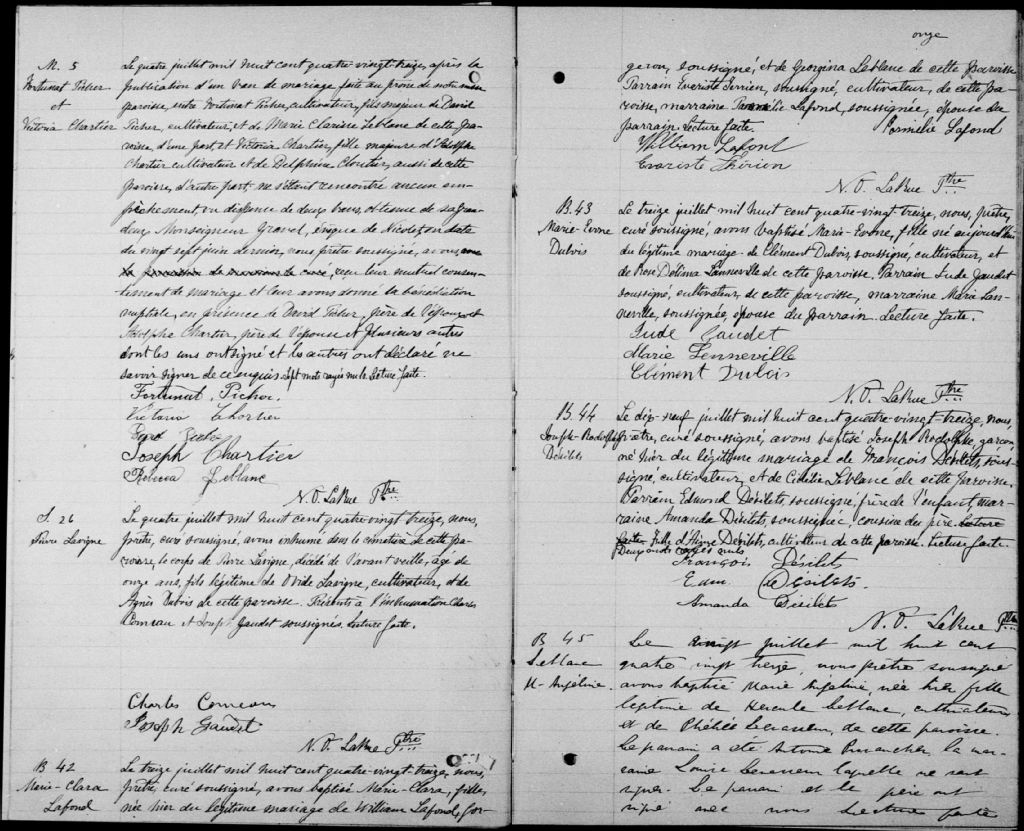 M. 5
Fortunat Picher
et
Victoria Chartier
Le quatre juillet mil huit cent quatre-vingt-treize, après la
publication d'un ban de mariage faite au prône de notre messe
paroisse, entre Fortunat Picher, cultivateur, fils majeur de David
Picher, cultivateur, et de Marie Clarisse Leblanc de cette pa-
roisse, d'une part, et Victoria Chartier, fille majeure d'Adolphe
Chartier cultivateur et de Delphine Cloutier, aussi de cette
paroisse, d'autre part ne s'étant rencontré aucun em-
pêchement, vu dispense de deux bans, obtenue de sa gran-
deur Monseigneur Gravel, évêque de Nicolet en date
du vingt sept juin dernier, nous prêtre soussigné, avons, avec
la permission de monsieur le curé, reçu leur mutuel consen-
tement de mariage et leur avons donné la bénédiction
nuptiale, en présence de David Picher, père de l'époux, et
Adolphe Chartier, père de l'épouse et plusieurs autres
dont les uns ont signé et les autres ont déclaré ne
savoir signer de ce enquis sept mots rayés nuls. Lecture faite.
Fortunat Picher
Victoria Chartier
Joseph Chartier
Rebecca Leblanc
N. O. LaRue Ptre
S. 26
Pierre Lavigne
Le quatre juillet mil huit cent quatre-vingt treize, nous,
prêtre, curé soussigné, avons inhumé dans le cimetière de cette pa-
roisse, le corps de Pierre Lavigne, décédé de l'avant veille, âgé de
onze ans, fils légitime de Ovide Lavigne, cultivateur, et de
Agnès Dubois de cette paroisse. Présents à l'inhumation Charles
Comeau et Joseph Gaudet soussignés. Lecture faite.
Charles Comeau
Joseph Gaudet
N. O. LaRue Ptre
B 42
Marie-Clara
Lafond
Le treize juillet mil huit cent quatre-vingt-treize, nous,
prêtre, curé soussigné, avons baptisé Marie-Clara, fille,
née hier du légitime mariage de William Lafond, for-
onze
geron, soussigné, et de Georgina Leblanc de cette paroisse
Parrain Evariste Terrien, soussigné, cultivateur, de cette pa-
roisse, marraine Lafond, soussignée, épouse du
parrain. Lecture faite. Pormélie Lafond
William Lafont
Evariste Thérien
N. O. LaRue Ptre
B. 43
Marie-Evone
Dubois
Le treize juillet mil huit cent quatre-vingt-treize, nous, prêtre,
curé soussigné, avons baptisé Marie-Evone, fille né aujourd'hui
du légitime mariage de Clément Dubois, soussigné, cultivateur, et
de Rose Délima Lanneville de cette paroisse. Parrain Jude Gaudet
soussigné, cultivateur, de cette paroisse, marraine Marie Lan-
neville, soussignée, épouse du parrain. Lecture faite.
Jude Gaudet
Marie Lenneville
Clément Dubois
N. O. LaRue Ptre
B. 44
Joseph-Rodolphe
Désilets
Le dix-neuf juillet mil huit cent quatre-vingt-treize, nous,
prêtre, curé soussigné, avons baptisé Joseph Rodolphe, garçon,
né hier du légitime mariage de François Désilets, sous-
signé, cultivateur, et de Célelie Leblanc de cette paroisse.
Parrain Edmond Désilets, soussigné, frère de l'enfant, mar-
raine Amanda Désilets, soussignée, cousine du père. Lecture
faite. fille d' Désilets, cultivateur de cette paroisse. Lecture faite.
Deux mots rayés nuls
François Désilets
Edm. Désilets.
Amanda Désilets
N. O. LaRue Ptre
B 45
Leblanc
M-Angéline
Le vingt juillet mil huit cent
quatre vingt treize, nous prêtre soussigné
avons baptisé Marie Angéline, née hier fille
légitime de Hercule Leblanc, cultivateur,
et de de cette paroisse.
Le parrain a été Antoine la mar-
raine Louise laquelle ne sait
signer. Le parrain et le père ont
signé avec nous Lecture faite